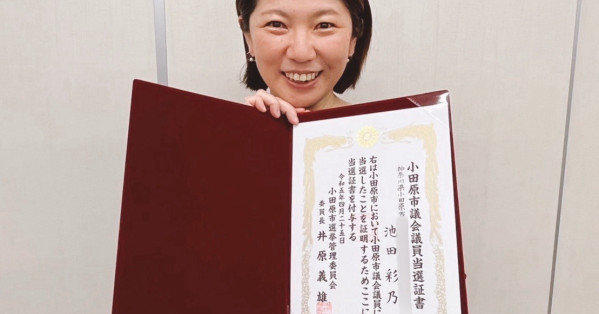 小田原市議会議員当選証書
神奈川県小田原市
池田彩乃
右は小田原市において小田原市議会議員に
当選したことを証明するためここに
当選証書を付与する
令和五年四月二十五日
小田原市選挙管理委員会
委員長 井原義雄